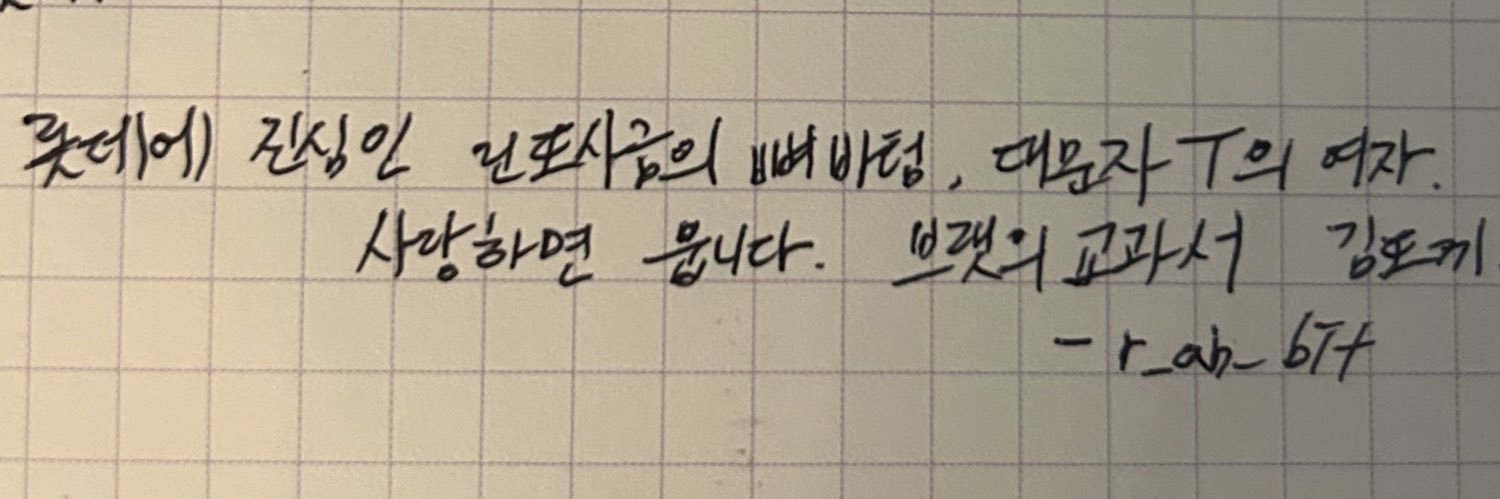 롯데에 진심인 린또사급의 뼈바텀, 대문자 T의 여자.
사랑하면 웁니다. 브랫의 교과서 김또끼.
- r_ab_bTt